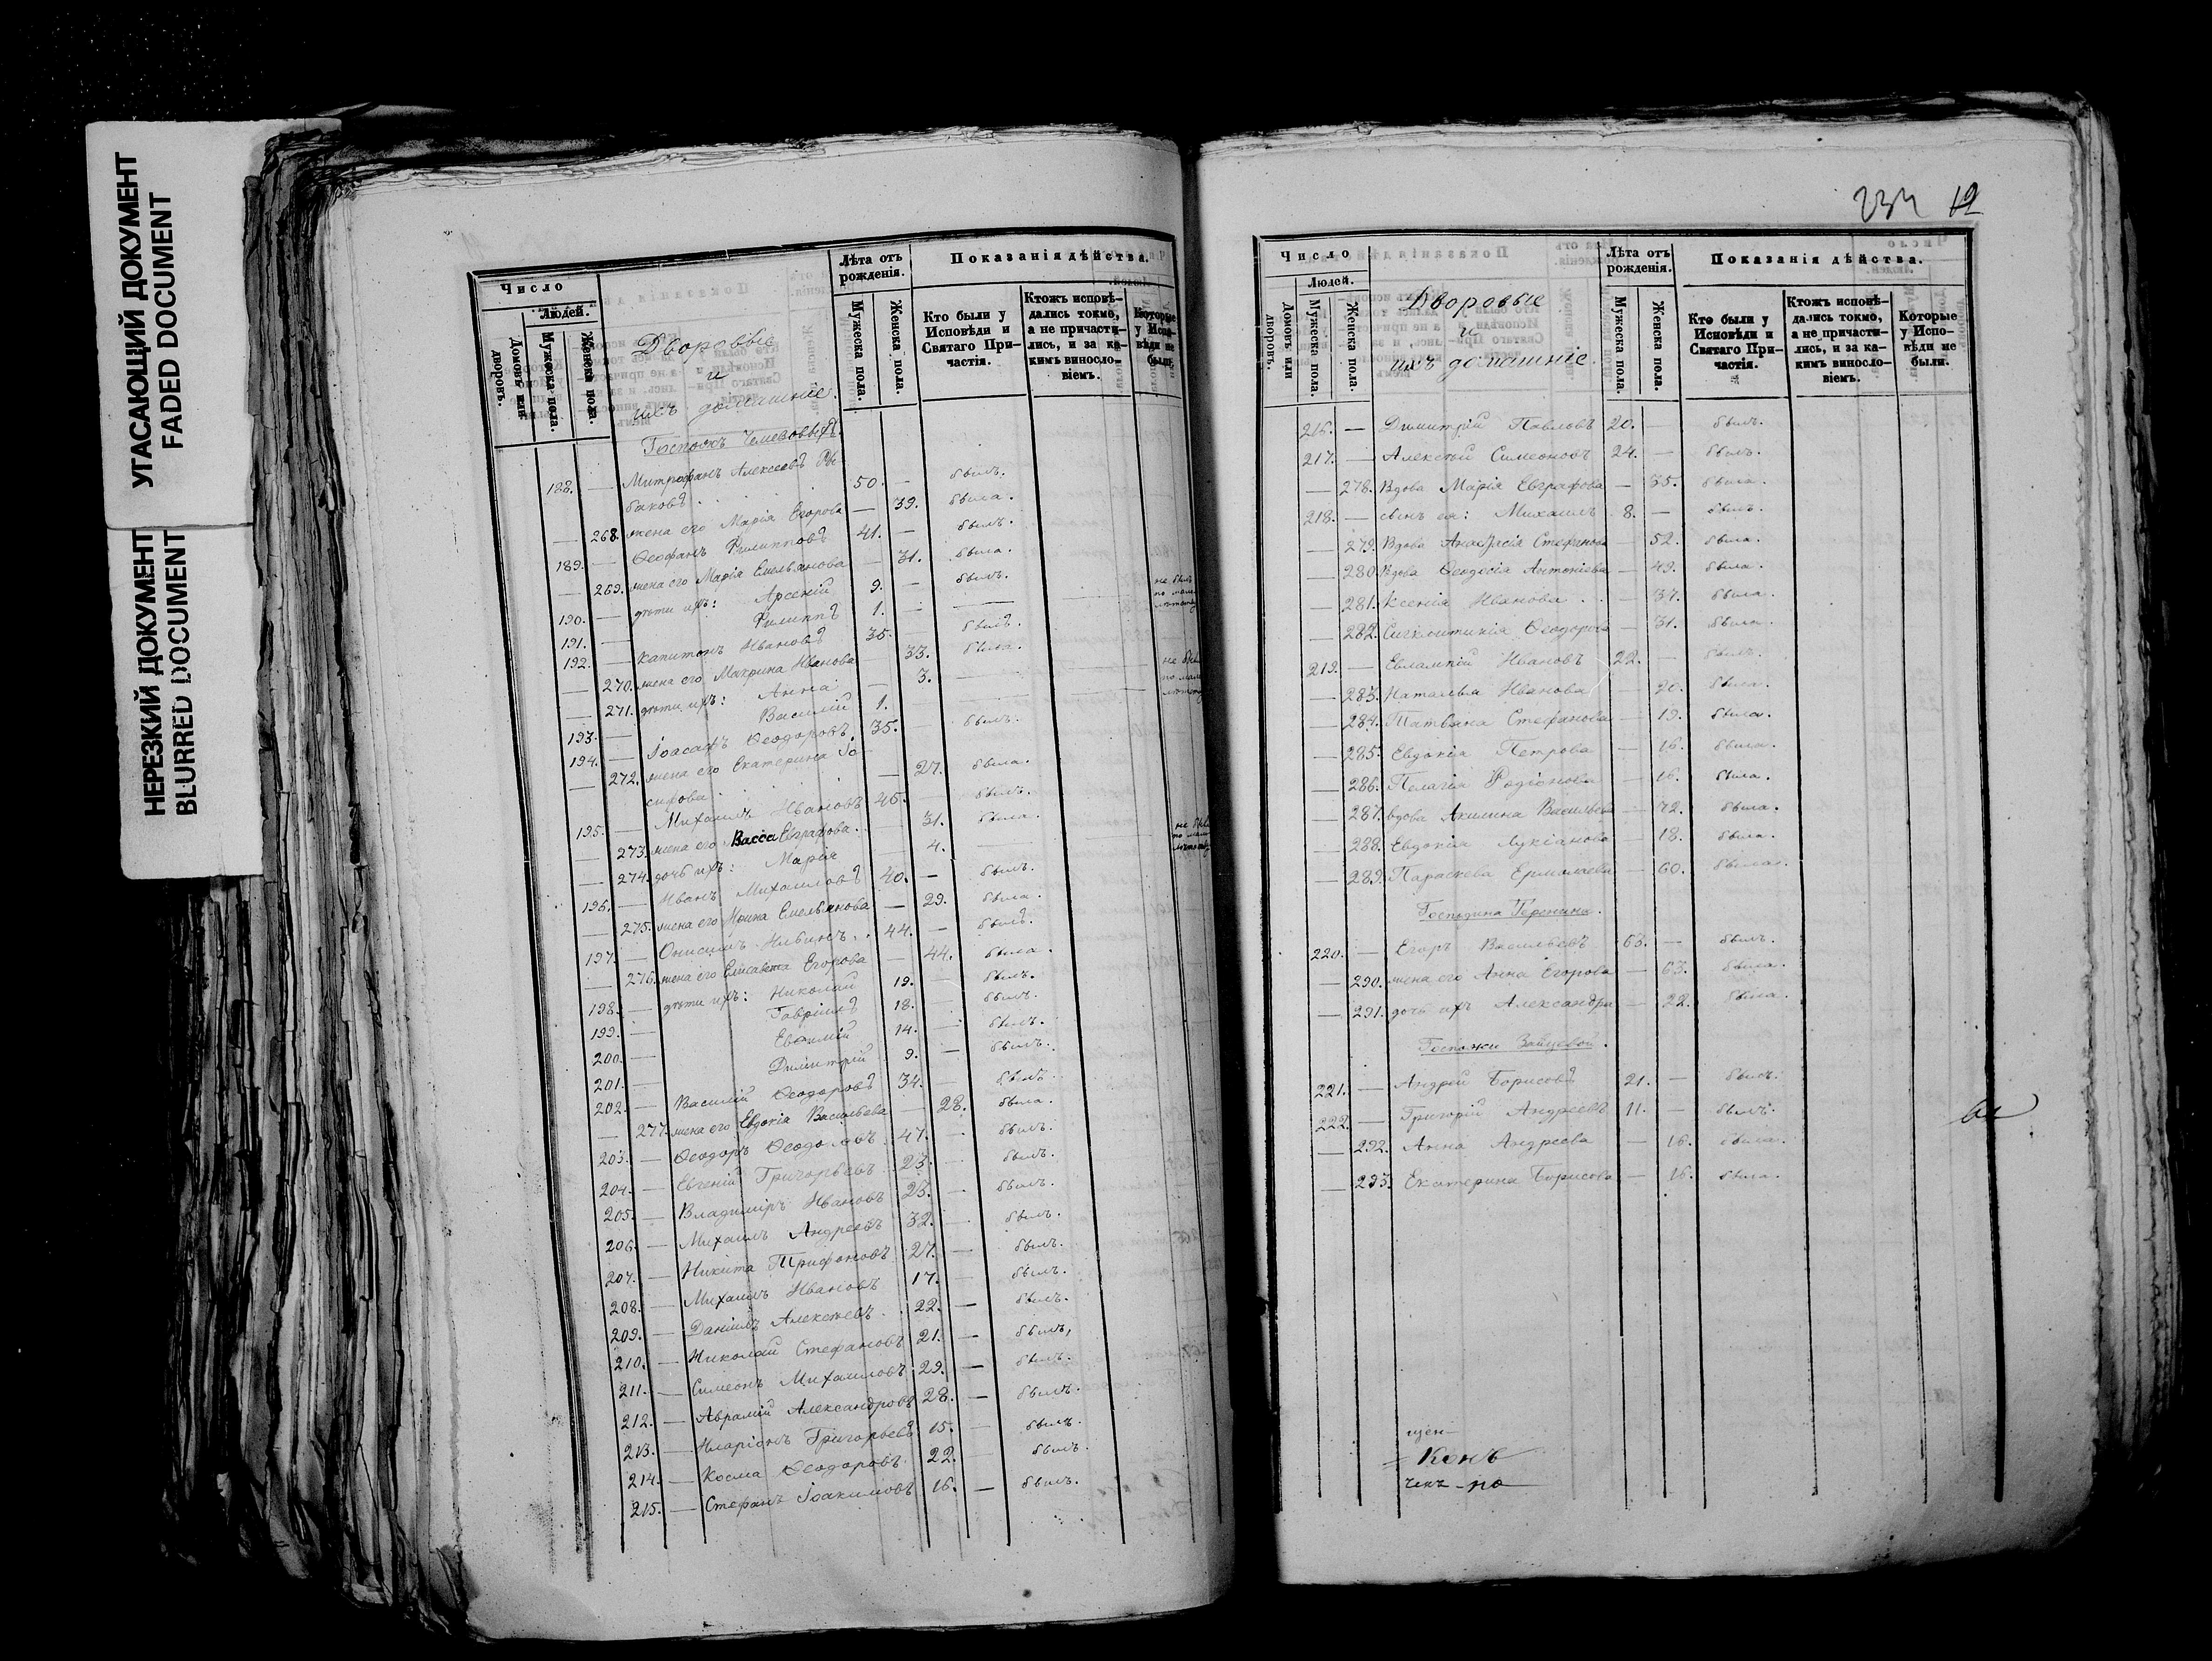 УГАСАЮЩИЙ ДОКУМЕНТ
FADED DOCUMENT
НЕРЕЗКИЙ ДОКУМЕНТ
BLURRED DOCUMENT
Число
Людей.
Домовъ или дворовъ.
Мужеска пола.
Женска пола.
Дворовые
и
ихъ домашніе.
Лѣта отъ рожденія.
Мужеска пола.
Женска пола.
Показанія дѣйства.
Кто были у Исповѣди и Святаго Причастія.
Ктожъ исповѣдались токмо, а не причастились, и за какимъ винословіемъ.
Которые у Исповѣди не были.
188. — Митрофанъ Алексеевъ Рыбаковъ 50. — былъ.
— 268. жена его Марія Егорова — 39. была.
189. — Ѳеофанъ Филипповъ 41. — былъ.
— 269. жена его Марія Емельянова — 31. была.
190. — дѣти ихъ: Арсеній 9. — былъ.
191. — Филиппъ 1. — не былъ по мало
192. — Капитонъ Ивановъ 35. былъ.
— 270. жена его Макрина Иванова 33. была.
— 271. дѣти ихъ: Анна 3. —
193. — Василій 1. —
194. — Іоасафъ Ѳеодоровъ. 35. — былъ.
— 272. жена его Екатерина Іосифова — 27. была.
195. — Михаилъ Ивановъ 45. — былъ.
— 273. жена его Васса Евграфова. — 31. была.
— 274. дочь ихъ: Марія — 4. —
196. — Иванъ Михаиловъ 40. — былъ.
— 275. жена его Емельянова — 29. была.
197. — Онисимъ Ильинъ. 44. — былъ.
— 276. жена его Елисавета Егорова — 44. была
198. — дѣти ихъ: Николай 19. — былъ.
199. — Гавріилъ 18. былъ.
200. — Евѳимій 14. — былъ.
201. — Димитрій 9. — былъ.
202. — Василій Ѳеодоровъ 34. — былъ.
— 277. жена его Евдокія Васильева — 28. была.
203. — Ѳеодоръ 47. — былъ.
204. — Евгеній Григорьевъ 23. — былъ.
205. — Владиміръ Ивановъ 25. — былъ.
206. — Михаилъ Андреевъ 32. — былъ.
207. — Никита Трифоновъ 27. — былъ.
208. — Михаилъ Ивановъ 17. — былъ.
209. — Даніилъ Алексѣевъ. 22. — былъ.
210. — Николай Стефановъ 21. — былъ,
211. — Симеонъ Михаиловъ 29. — былъ.
212. — Аврамій Александровъ 28. — былъ.
213. — Иларіонъ Григорьевъ 15. — былъ.
214. — Косма Ѳеодоровъ 22. былъ.
215. — Стефанъ Іоакимовъ 16. — былъ.
12
Число
Людей.
Домовъ или дворовъ.
Мужеска пола.
Женска пола.
Дворовые
и
ихъ домашніе.
Лѣта отъ рожденія.
Мужеска пола.
Женска пола.
Показанія дѣйства.
Кто были у Исповѣди и Святаго Причастія.
Ктожъ исповѣдались токмо, а не причастились, и за какимъ винословіемъ.
Которые у Исповѣди не были.
216. — Димитрій Павловъ 20. — былъ.
217. — Алексѣй Симеоновъ 24. — былъ.
— 278. Вдова Марія Евграфова — 35. была.
218. — сынъ ея: Михаилъ 8. — былъ.
— 279. Вдова Анастасія Стефанова — 52. была.
— 280. Вдова Ѳеодосія Антоніева — 49. была.
— 281. Ксенія Иванова. — 37. была.
— 282. Сигклитикія Ѳеодорова — 31. была.
219. — Евлампій Ивановъ 22. — былъ.
— 283. Наталья Иванова — 20. была.
— 284. Татьяна Стефанова — 19. была.
— 285. Евдокія Петрова — 16. была.
— 286. Пелагія Родіонова — 16. была.
— 287. вдова Акилина Васильева — 72. была.
— 288. Евдокія Лукіанова — 18. была.
— 289. Параскева Ермолаева — 60. была.
220. — Егоръ Васильевъ 63. — былъ.
— 290. жена его Анна Егорова — 63. была.
— 291. дочь ихъ Александра — 22. была.
Госпожи Зайцевой.
221. — Андрей Борисовъ 21. — былъ.
222. — Григорій Андреевъ 11. — былъ.
— 292. Анна Андреева — 16. была.
— 293. Екатерина Борисова — 16. была.